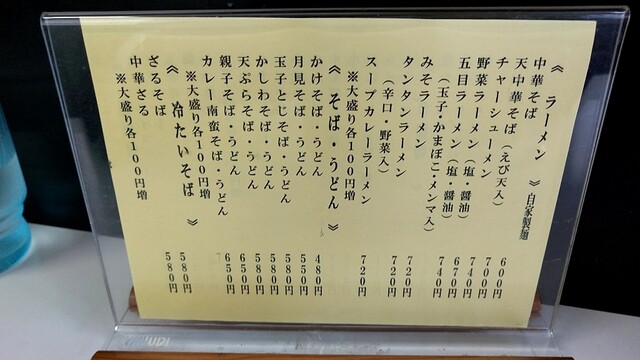 《 ラーメン 》 自家製麺
中華そば 600円
天中華そば（えび天入） 700円
チャーシューメン 740円
野菜ラーメン（塩・醤油） 670円
五目ラーメン（塩・醤油） 740円
（玉子・かまぼこ・メンマ入）
みそラーメン 720円
タンタンラーメン 720円
（辛口・野菜入）
スープカレーラーメン 720円
※大盛り各100円増
《 そば・うどん 》
かけそば・うどん 480円
月見そば・うどん 550円
玉子とじそば・うどん 580円
かしわそば・うどん 580円
天ぷらそば・うどん 580円
親子そば・うどん 650円
カレー南蛮そば・うどん 650円
※大盛り各100円増
《 冷たいそば 》
ざるそば 580円
中華ざる 580円
※大盛り各100円増